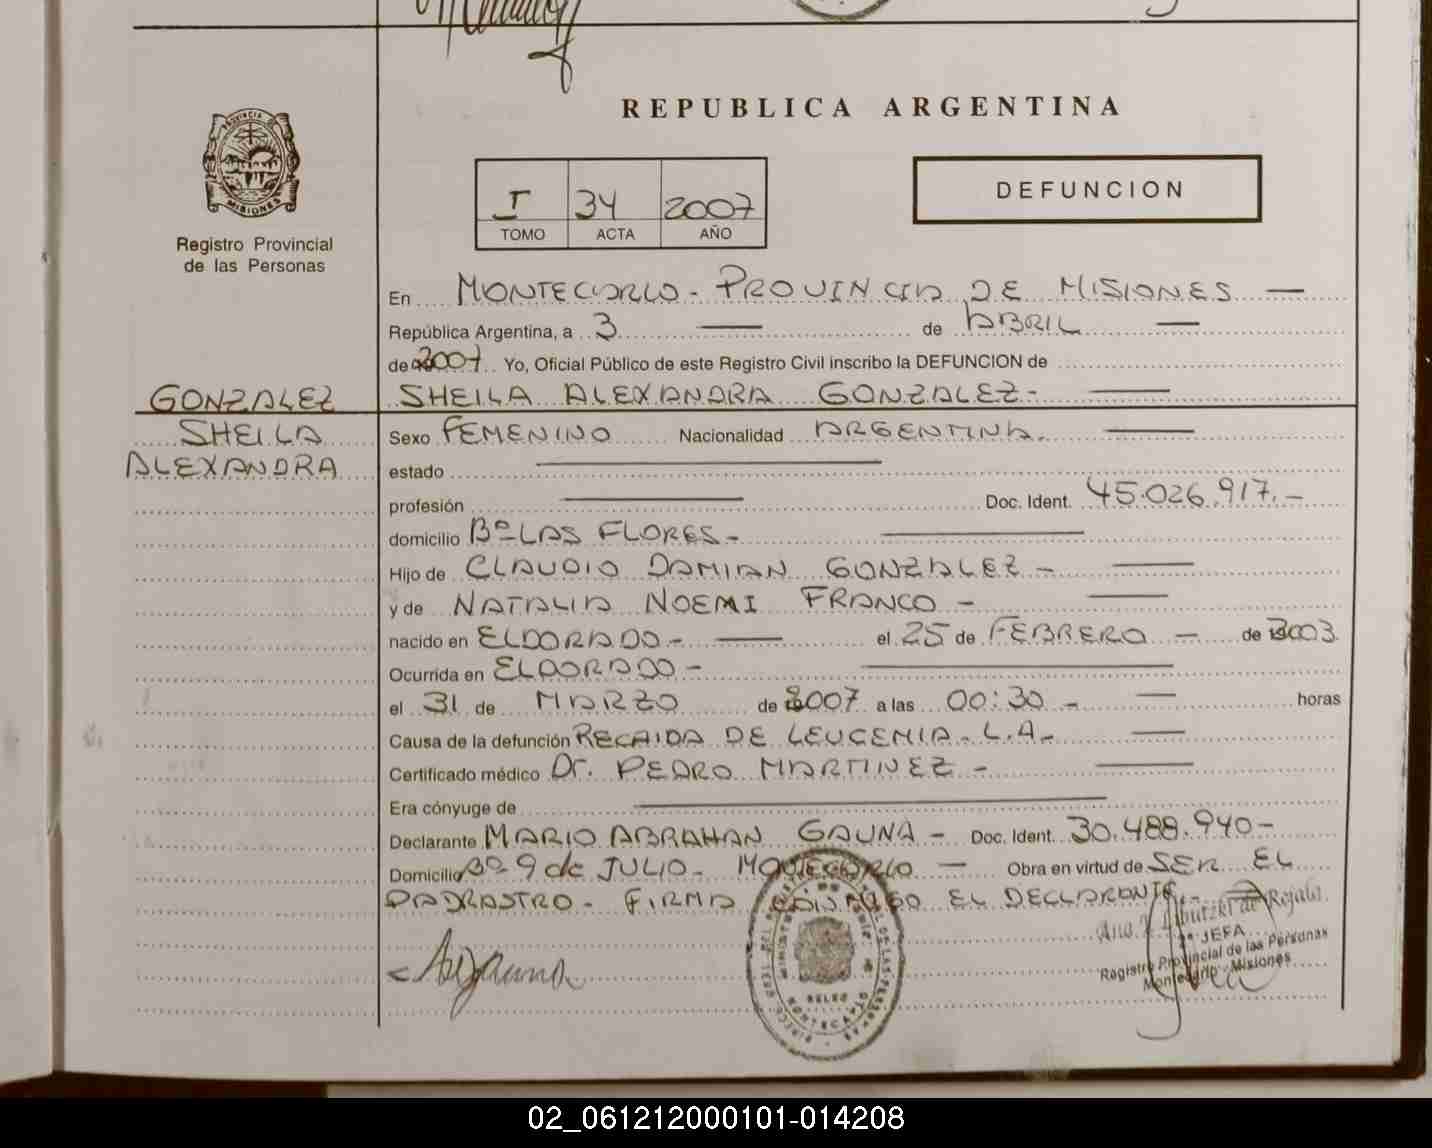 REPUBLICA ARGENTINA
PROVINCIA DE
MISIONES
Registro Provincial
de las Personas
I 34 2007
TOMO ACTA AÑO
DEFUNCION
En MONTECARLO - PROVINCIA DE MISIONES —
República Argentina, a 3 — de ABRIL —
de 2007 Yo, Oficial Público de este Registro Civil inscribo la DEFUNCION de
GONZALEZ
SHEILA
ALEXANDRA
SHEILA ALEXANDRA GONZALEZ - —
Sexo FEMENINO Nacionalidad ARGENTINA. —
estado —
profesión — Doc. Ident. 45.026.917.-
domicilio Bº LAS FLORES - —
Hijo de CLAUDIO DAMIAN GONZALEZ - —
y de NATALIA NOEMI FRANCO - —
nacido en ELDORADO - — el 25 de FEBRERO — de 2003
Ocurrida en ELDORADO - —
el 31 de MARZO de 2007 a las 00:30 - — horas
Causa de la defunción RECAIDA DE LEUCEMIA - L.A - —
Certificado médico Dr. PEDRO MARTINEZ - —
Era cónyuge de —
Declarante MARIO ABRAHAN GAUNA - Doc. Ident. 30.488.940-
Domicilio Bº 9 de JULIO - MONTECARLO — Obra en virtud de SER EL
PADRASTRO - FIRMA CONMIGO EL DECLARANTE -
JEFA
Registro Provincial de las Personas
Montecarlo - Misiones
02_061212000101-014208